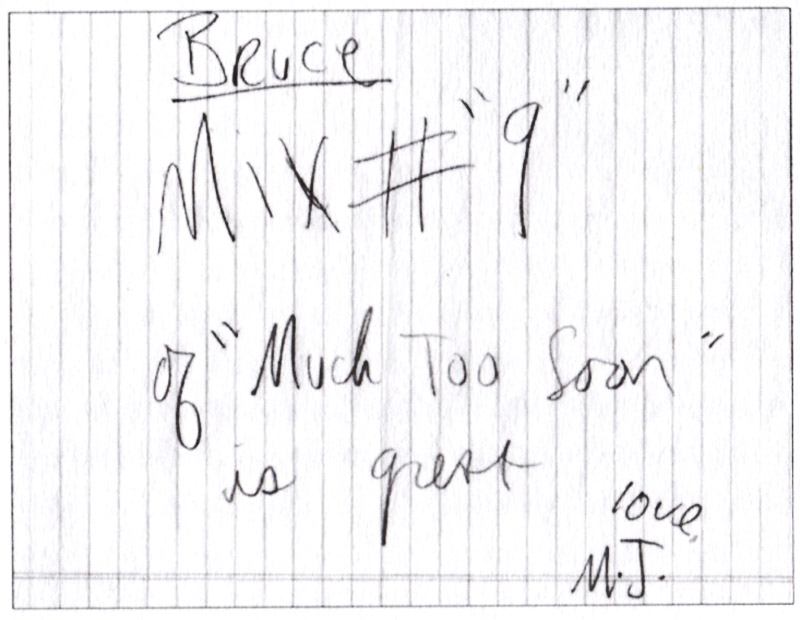 Bruce
Mix # "9"
of "Much Too Soon"
is great
love,
M.J.